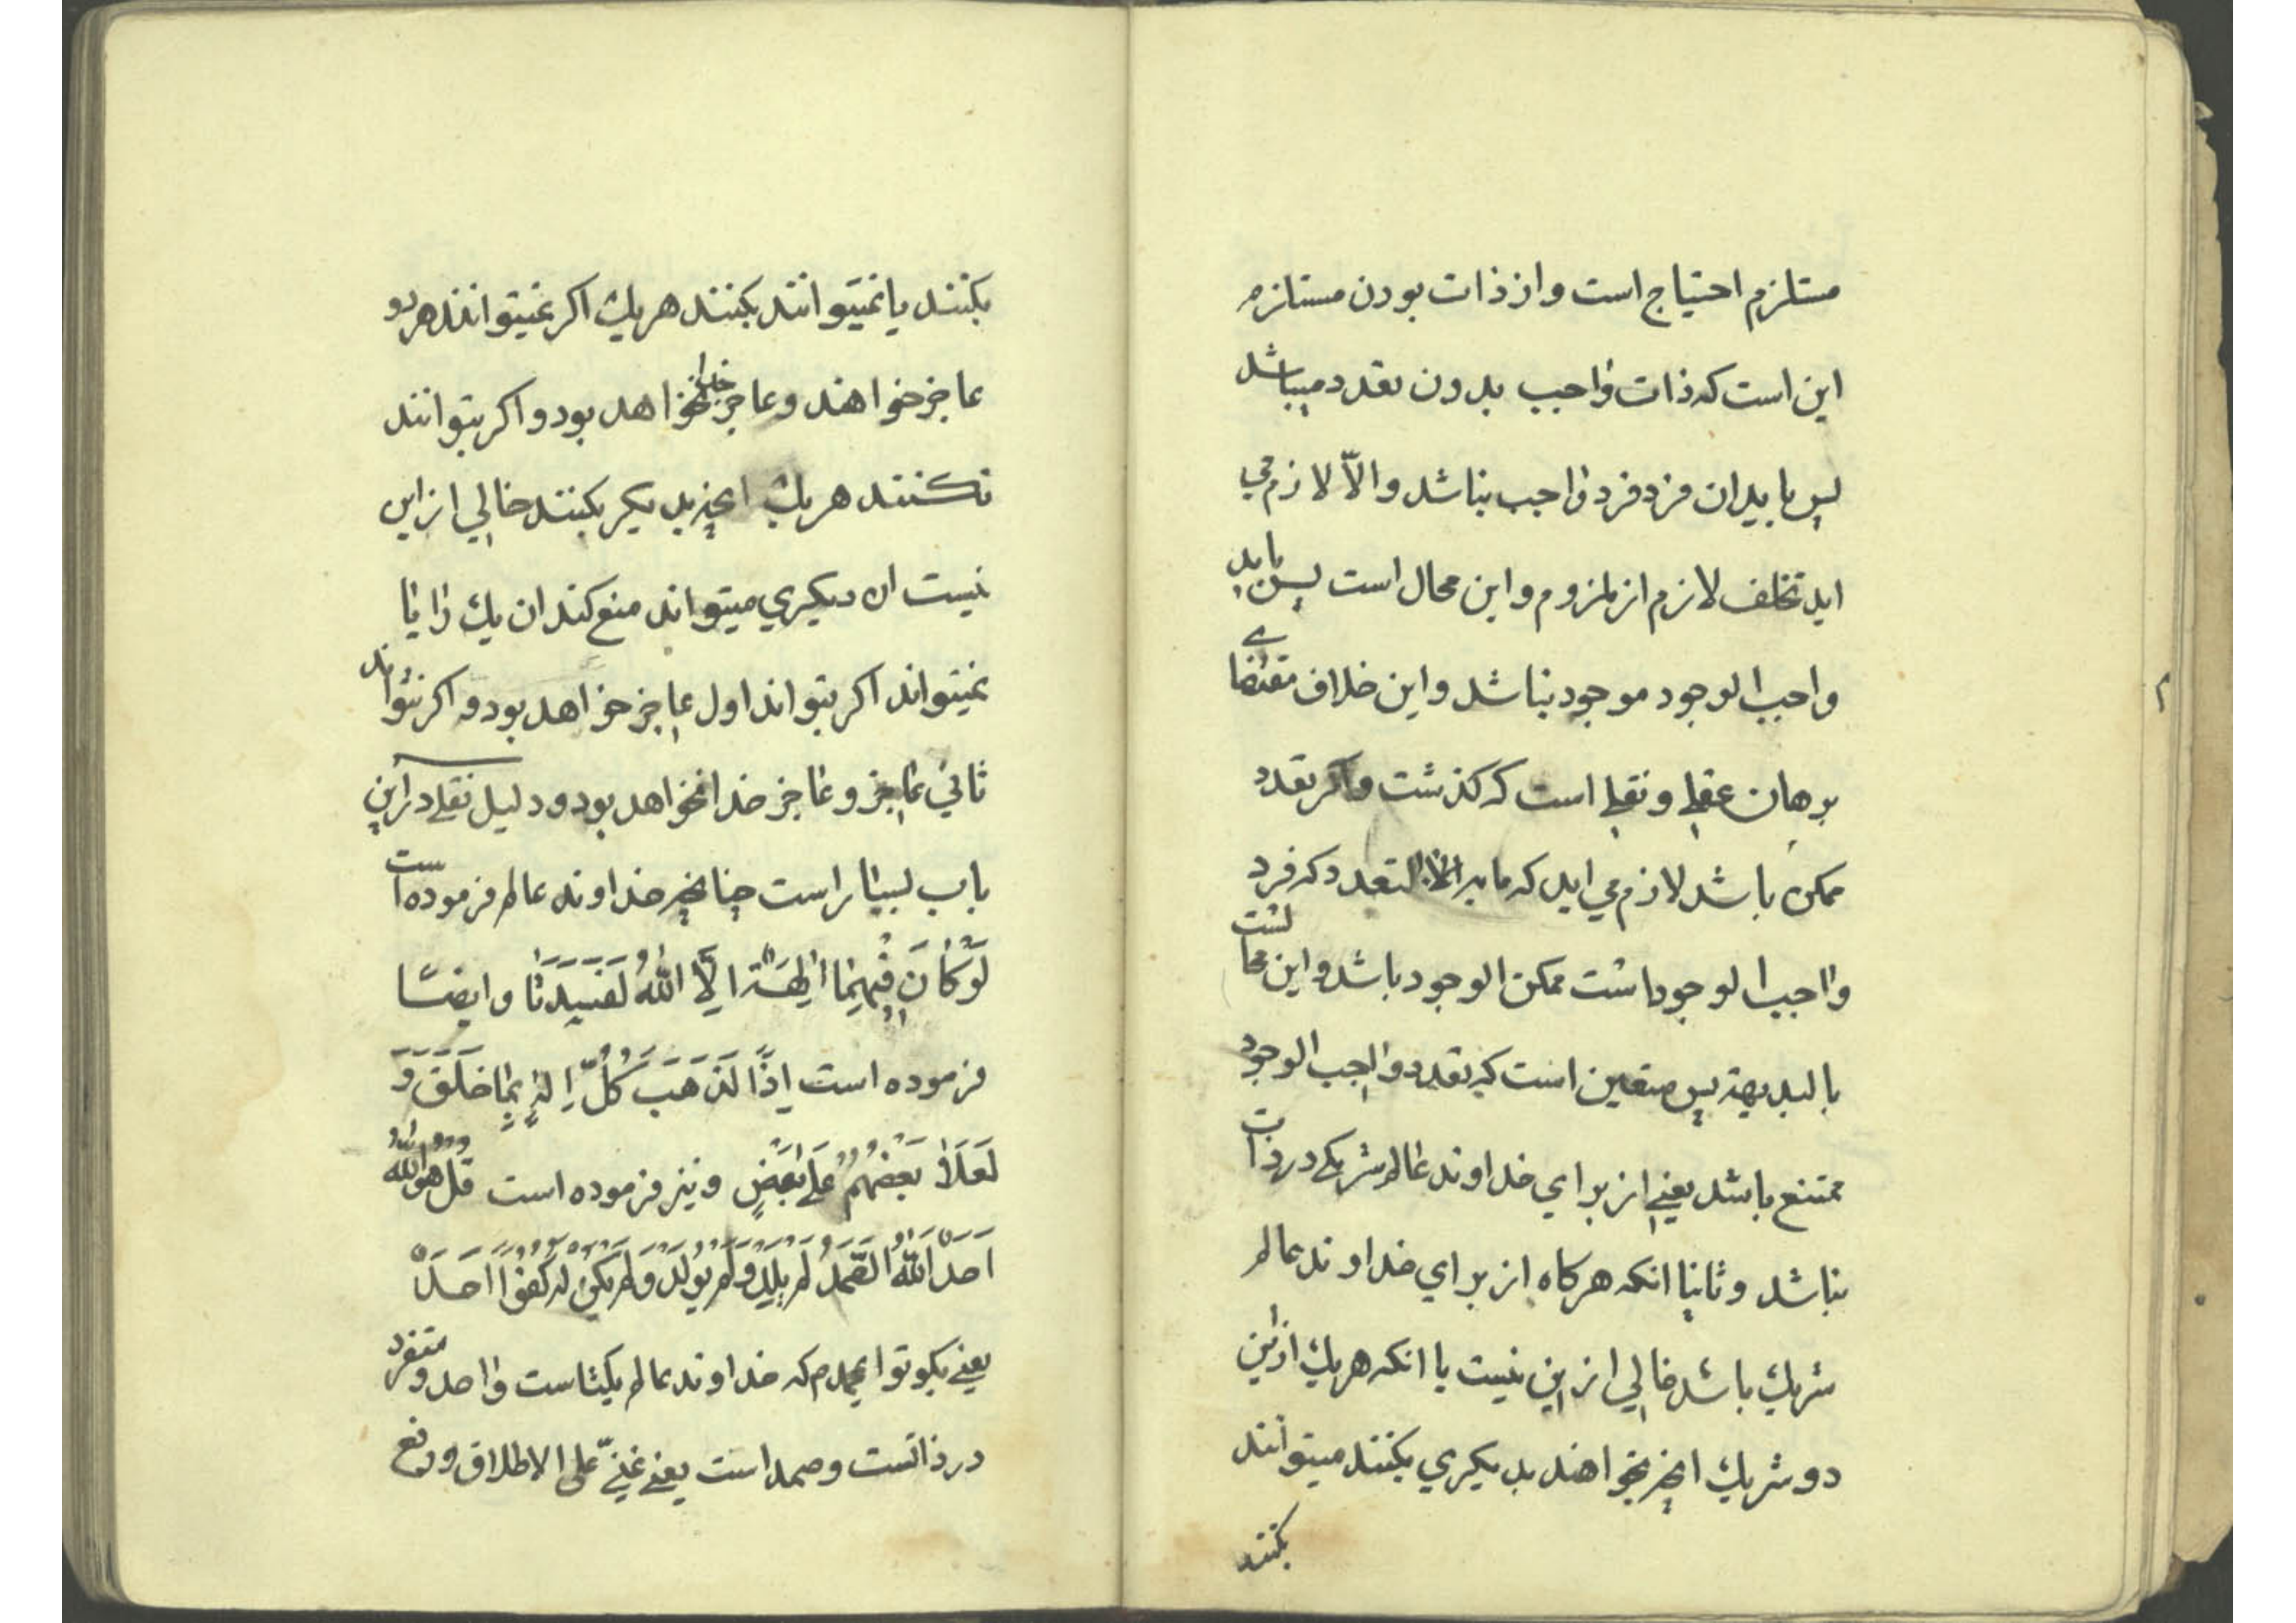 مستلزم احتیاج است و از ذات بودن مستلزم
این است که ذات واجب بدون تعدد میباشد
پس باید ان فرد فرد واجب نباشد والاّ لازم می
اید تخلف لازم از ملزوم و این محال است پس باید
واجب الوجود موجود نباشد و این خلاف مقتضای
برهان عقلی و نقلی است که کذشت و اکر تعدد
ممکن باشد لازم می اید که ما به التعدد که فرد
واجب الوجود است ممکن الوجود باشد و این محا لست
بالبدیهة پس متعین است که تعدد واجب الوجود
ممتنع باشد یعنی از برای خداوند عالم شریکی در ذات
نباشد و ثانیا انکه هرکاه از برای خداوند عالم
شریك باشد خالی از این نیست یا انکه هریك از این
دو شریك انچه بخواهند بدیکری بکنند میتوانند
بکنند
بکنند یا نمیتوانند بکنند هریك اکر نمیتوانند هر دو
عاجز خواهند و عاجز خدا نخواهد بود و اکر بتوانند
نکنند هریك انچه بدیکر بکنند خالی از این
نیست ان دیکری میتواند منع کند ان یك را یا
نمیتواند اکر بتواند اول عاجز خواهد بود و اکر نتواند
ثانی عاجز و عاجز خدا نخواهد بود و دلیل نقلی در این
باب بسیار است چنانچه خداوند عالم فرموده است
لَوْ كَانَ فِيهِمَا اٰلِهَةٌ اِلَّا اللهُ لَفَسَدَتَا و ایضًا
فرموده است اِذًا لَذَهَبَ كُلُّ اِلٰهٍ بِمَا خَلَقَ وَ
لَعَلَا بَعْضُهُمْ عَلَى بَعْضٍ و نیز فرموده است قُلْ هُوَ اللهُ
اَحَدٌ اَللهُ الصَّمَدُ لَمْ يَلِدْ وَلَمْ يُولَدْ وَلَمْ يَكُنْ لَهُ كُفُوًا اَحَدٌ
یعنی بکو تو ای محمد م که خداوند عالم یکتاست واحد و متفرد
در ذاتست و صمد است یعنی غنیّ علی الاطلاق و رفع